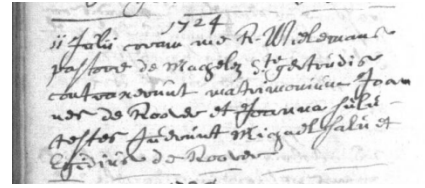 1724
11 Julii coram me R. Wielemans
pastore de Machelen Ste gertrudis
contraxerunt matrimonium Joan
nes de Roover et Joanna
testes fuerunt Migael et
Egidius de Roover